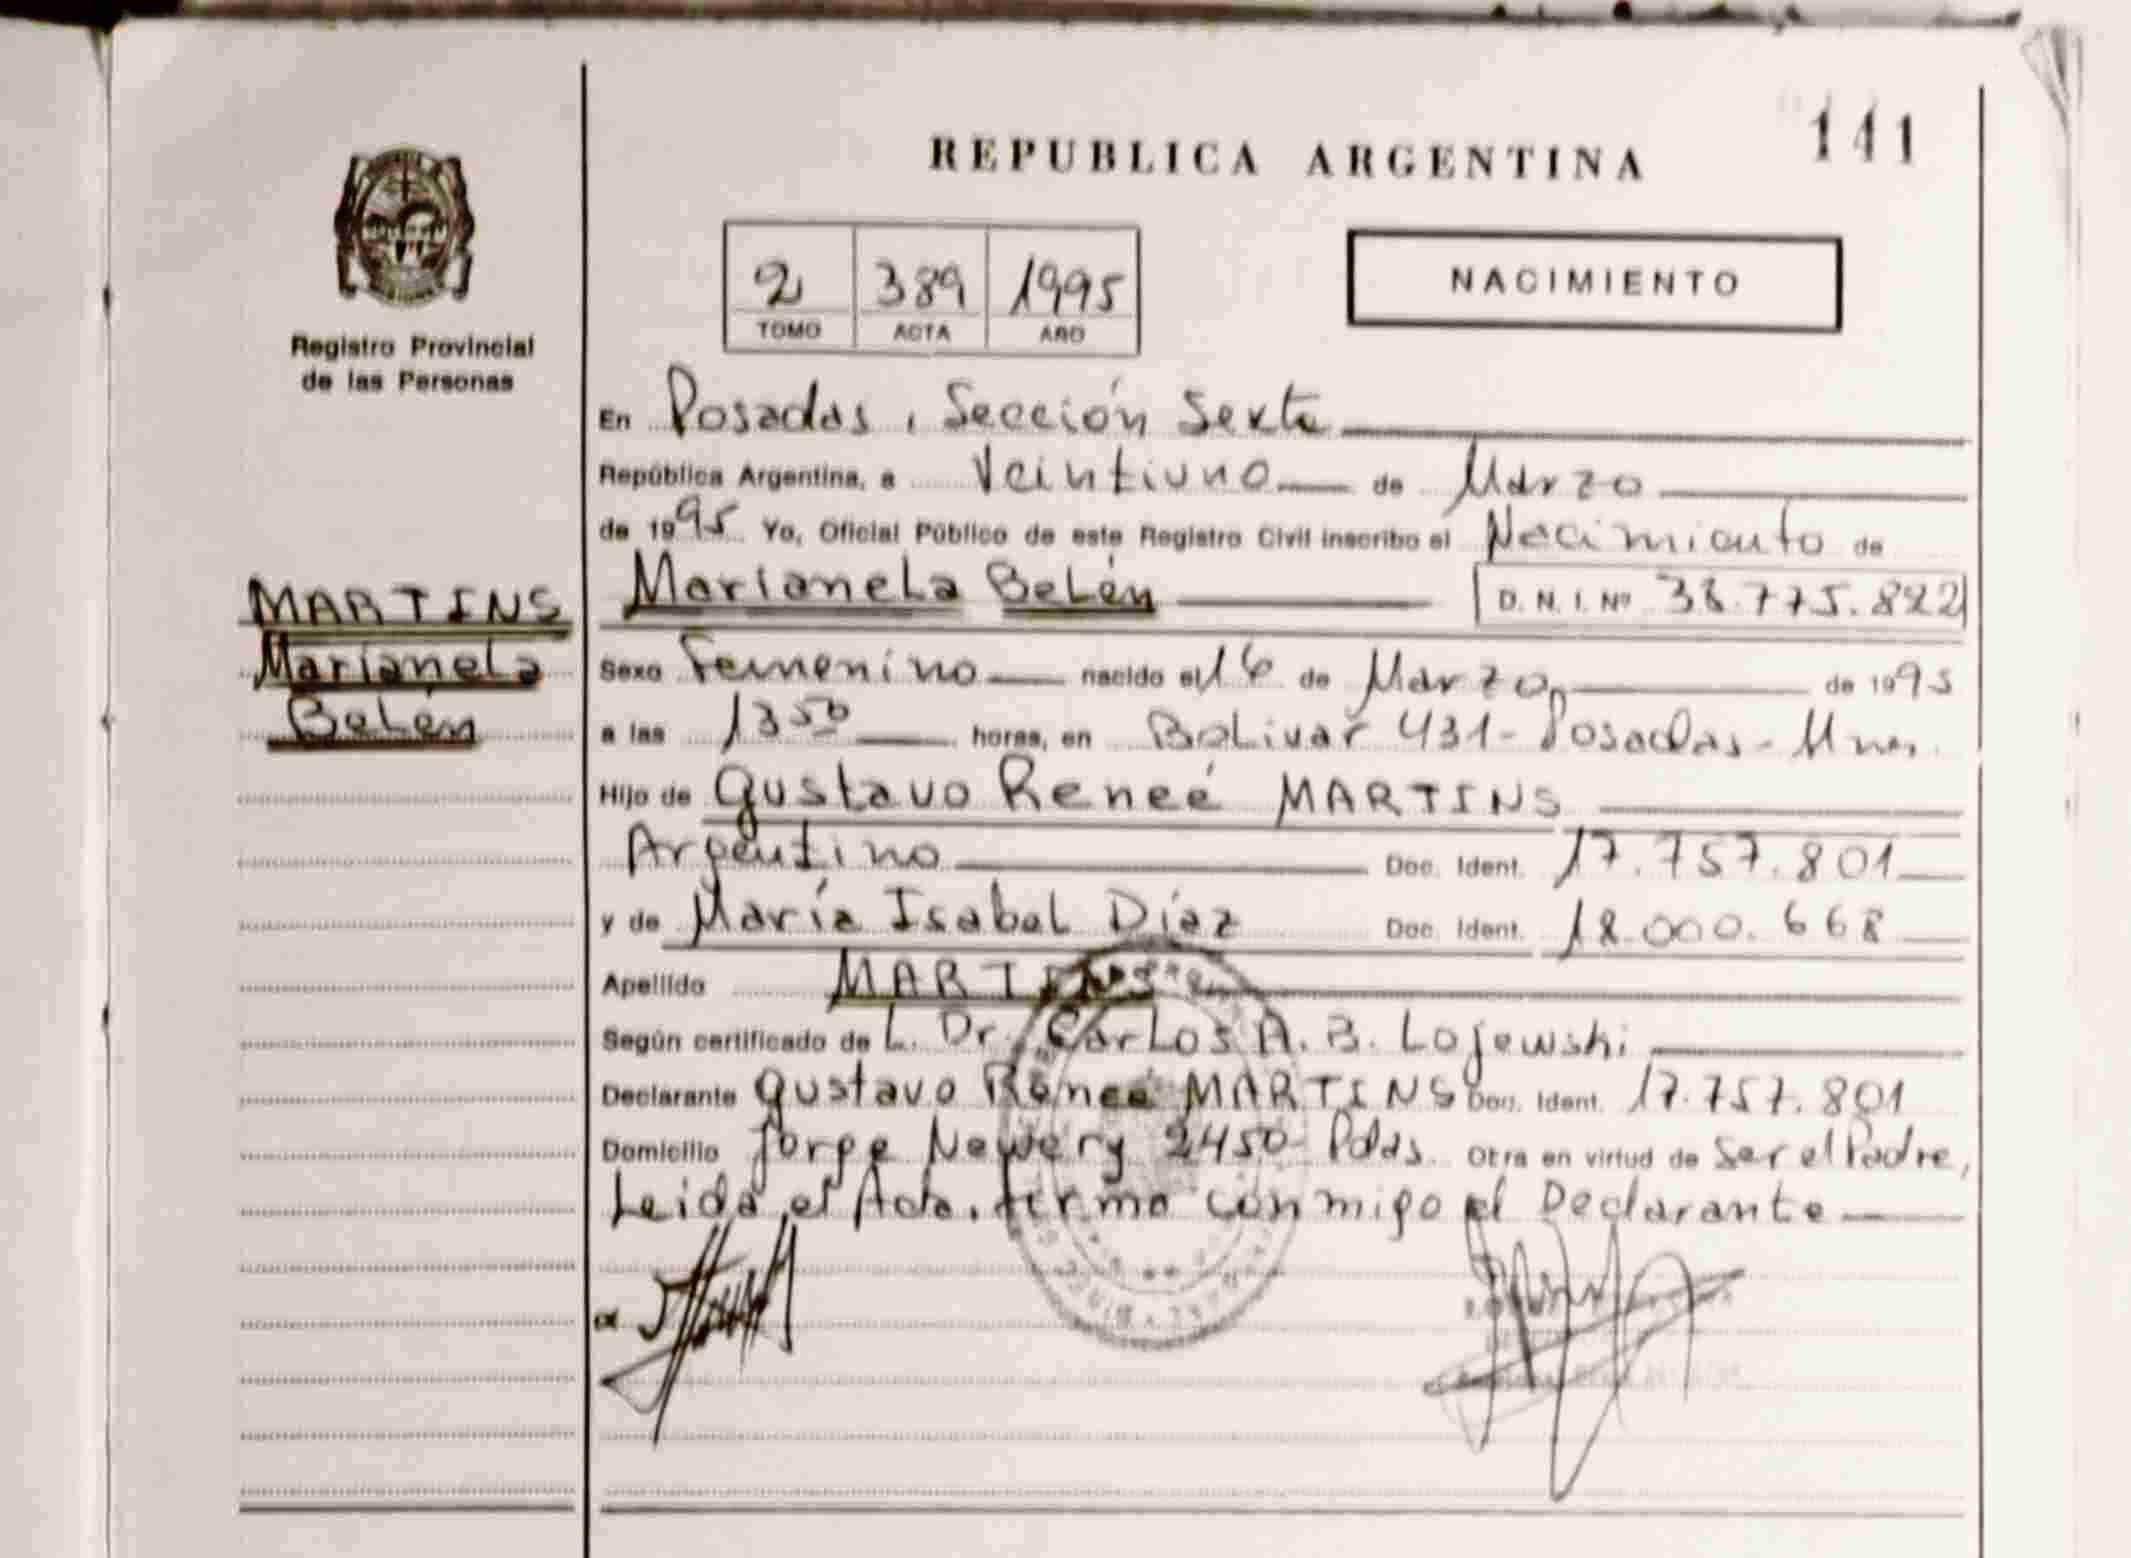 141
REPUBLICA ARGENTINA
NACIMIENTO
2 389 1995
TOMO ACTA AÑO
Registro Provincial
de las Personas
En Posadas, Sección Sexta
República Argentina, a Veintiuno de Marzo
de 1995 Yo, Oficial Público de este Registro Civil inscribo el Nacimiento de
Marianela Belén D. N. I. Nº 38.775.822
MARTINS
Marianela
Belén
Sexo Femenino nacido el 16 de Marzo de 1995
a las 13 50 horas, en Bolivar 431 - Posadas - Mnes.
Hijo de Gustavo Reneé MARTINS
Argentino Doc. Ident. 17.757.801
y de María Isabel Díaz Doc. Ident. 18.000.668
Apellido MARTINS
Según certificado de L. Dr. Carlos A. B. Lojewski
Declarante Gustavo Reneé MARTINS Doc. Ident. 17.757.801
Domicilio Jorge Newery 2450 - Pdas. Otra en virtud de ser el Padre,
Leida el Acta, firma conmigo el Declarante